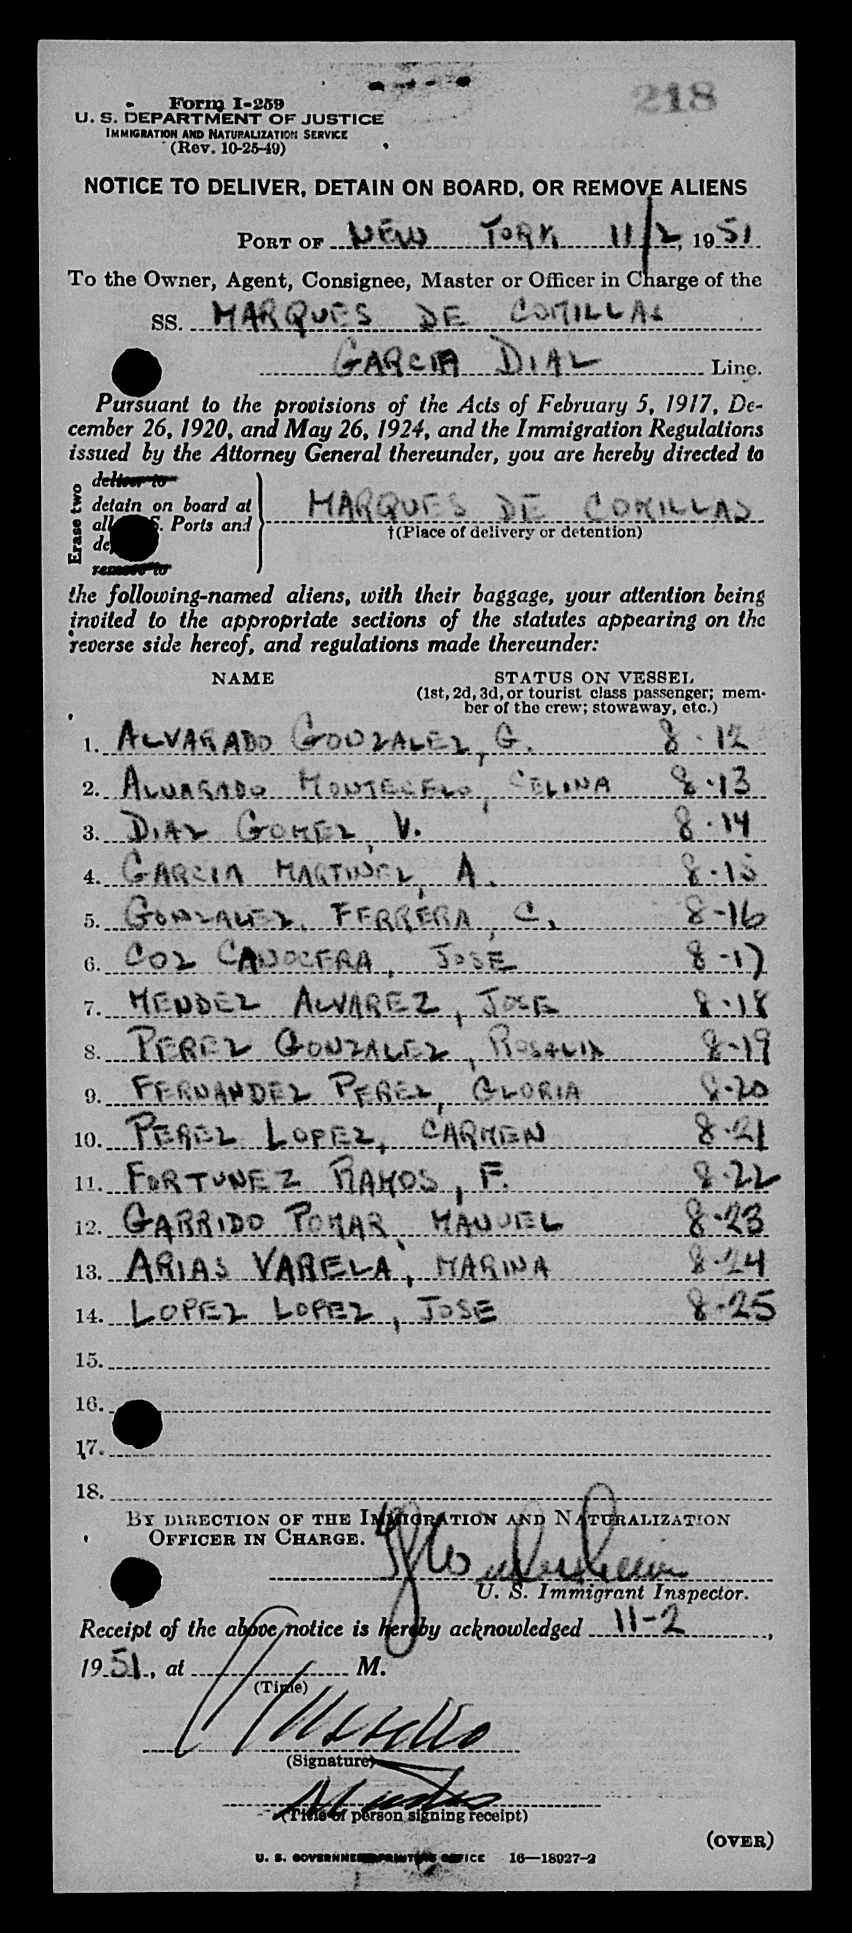 218
Form I-259
U. S. DEPARTMENT OF JUSTICE
IMMIGRATION AND NATURALIZATION SERVICE
(Rev. 10-25-49)
NOTICE TO DELIVER, DETAIN ON BOARD, OR REMOVE ALIENS
PORT OF NEW YORK 11/2, 1951
To the Owner, Agent, Consignee, Master or Officer in Charge of the
SS. MARQUES DE COMILLAS
GARCIA DIAZ Line.
Pursuant to the provisions of the Acts of February 5, 1917, De-
cember 26, 1920, and May 26, 1924, and the Immigration Regulations
issued by the Attorney General thereunder, you are hereby directed to
Erase two
deliver to
detain on board at
all S. Ports and
remove to
MARQUES DE COMILLAS
†(Place of delivery or detention)
the following-named aliens, with their baggage, your attention being
invited to the appropriate sections of the statutes appearing on the
reverse side hereof, and regulations made thereunder:
NAME STATUS ON VESSEL
(1st, 2d, 3d, or tourist class passenger; mem-
ber of the crew; stowaway, etc.)
1. ALVARADO GONZALEZ, G. 8-12
2. ALVARADO MONTECELO, CELINA 8-13
3. DIAZ GOMEZ, V. 8-14
4. GARCIA MARTINEZ, A. 8-15
5. GONZALEZ, FERRERA, C. 8-16
6. COZ CANOCERA, JOSE 8-17
7. MENDEZ ALVAREZ, JOSE 8-18
8. PEREZ GONZALEZ, ROSALIA 8-19
9. FERNANDEZ PEREZ, GLORIA 8-20
10. PEREZ LOPEZ, CARMEN 8-21
11. FORTUNEZ RAMOS, F. 8-22
12. GARRIDO POMAR, MANUEL 8-23
13. ARIAS VARELA, MARINA 8-24
14. LOPEZ LOPEZ, JOSE 8-25
15.
16.
17.
18.
BY DIRECTION OF THE IMMIGRATION AND NATURALIZATION
OFFICER IN CHARGE.
U. S. Immigrant Inspector.
Receipt of the above notice is hereby acknowledged 11-2,
1951, at M.
(Time)
(Signature)
(Title of person signing receipt)
(OVER)
U. S. GOVERNMENT PRINTING OFFICE 16—18927-2